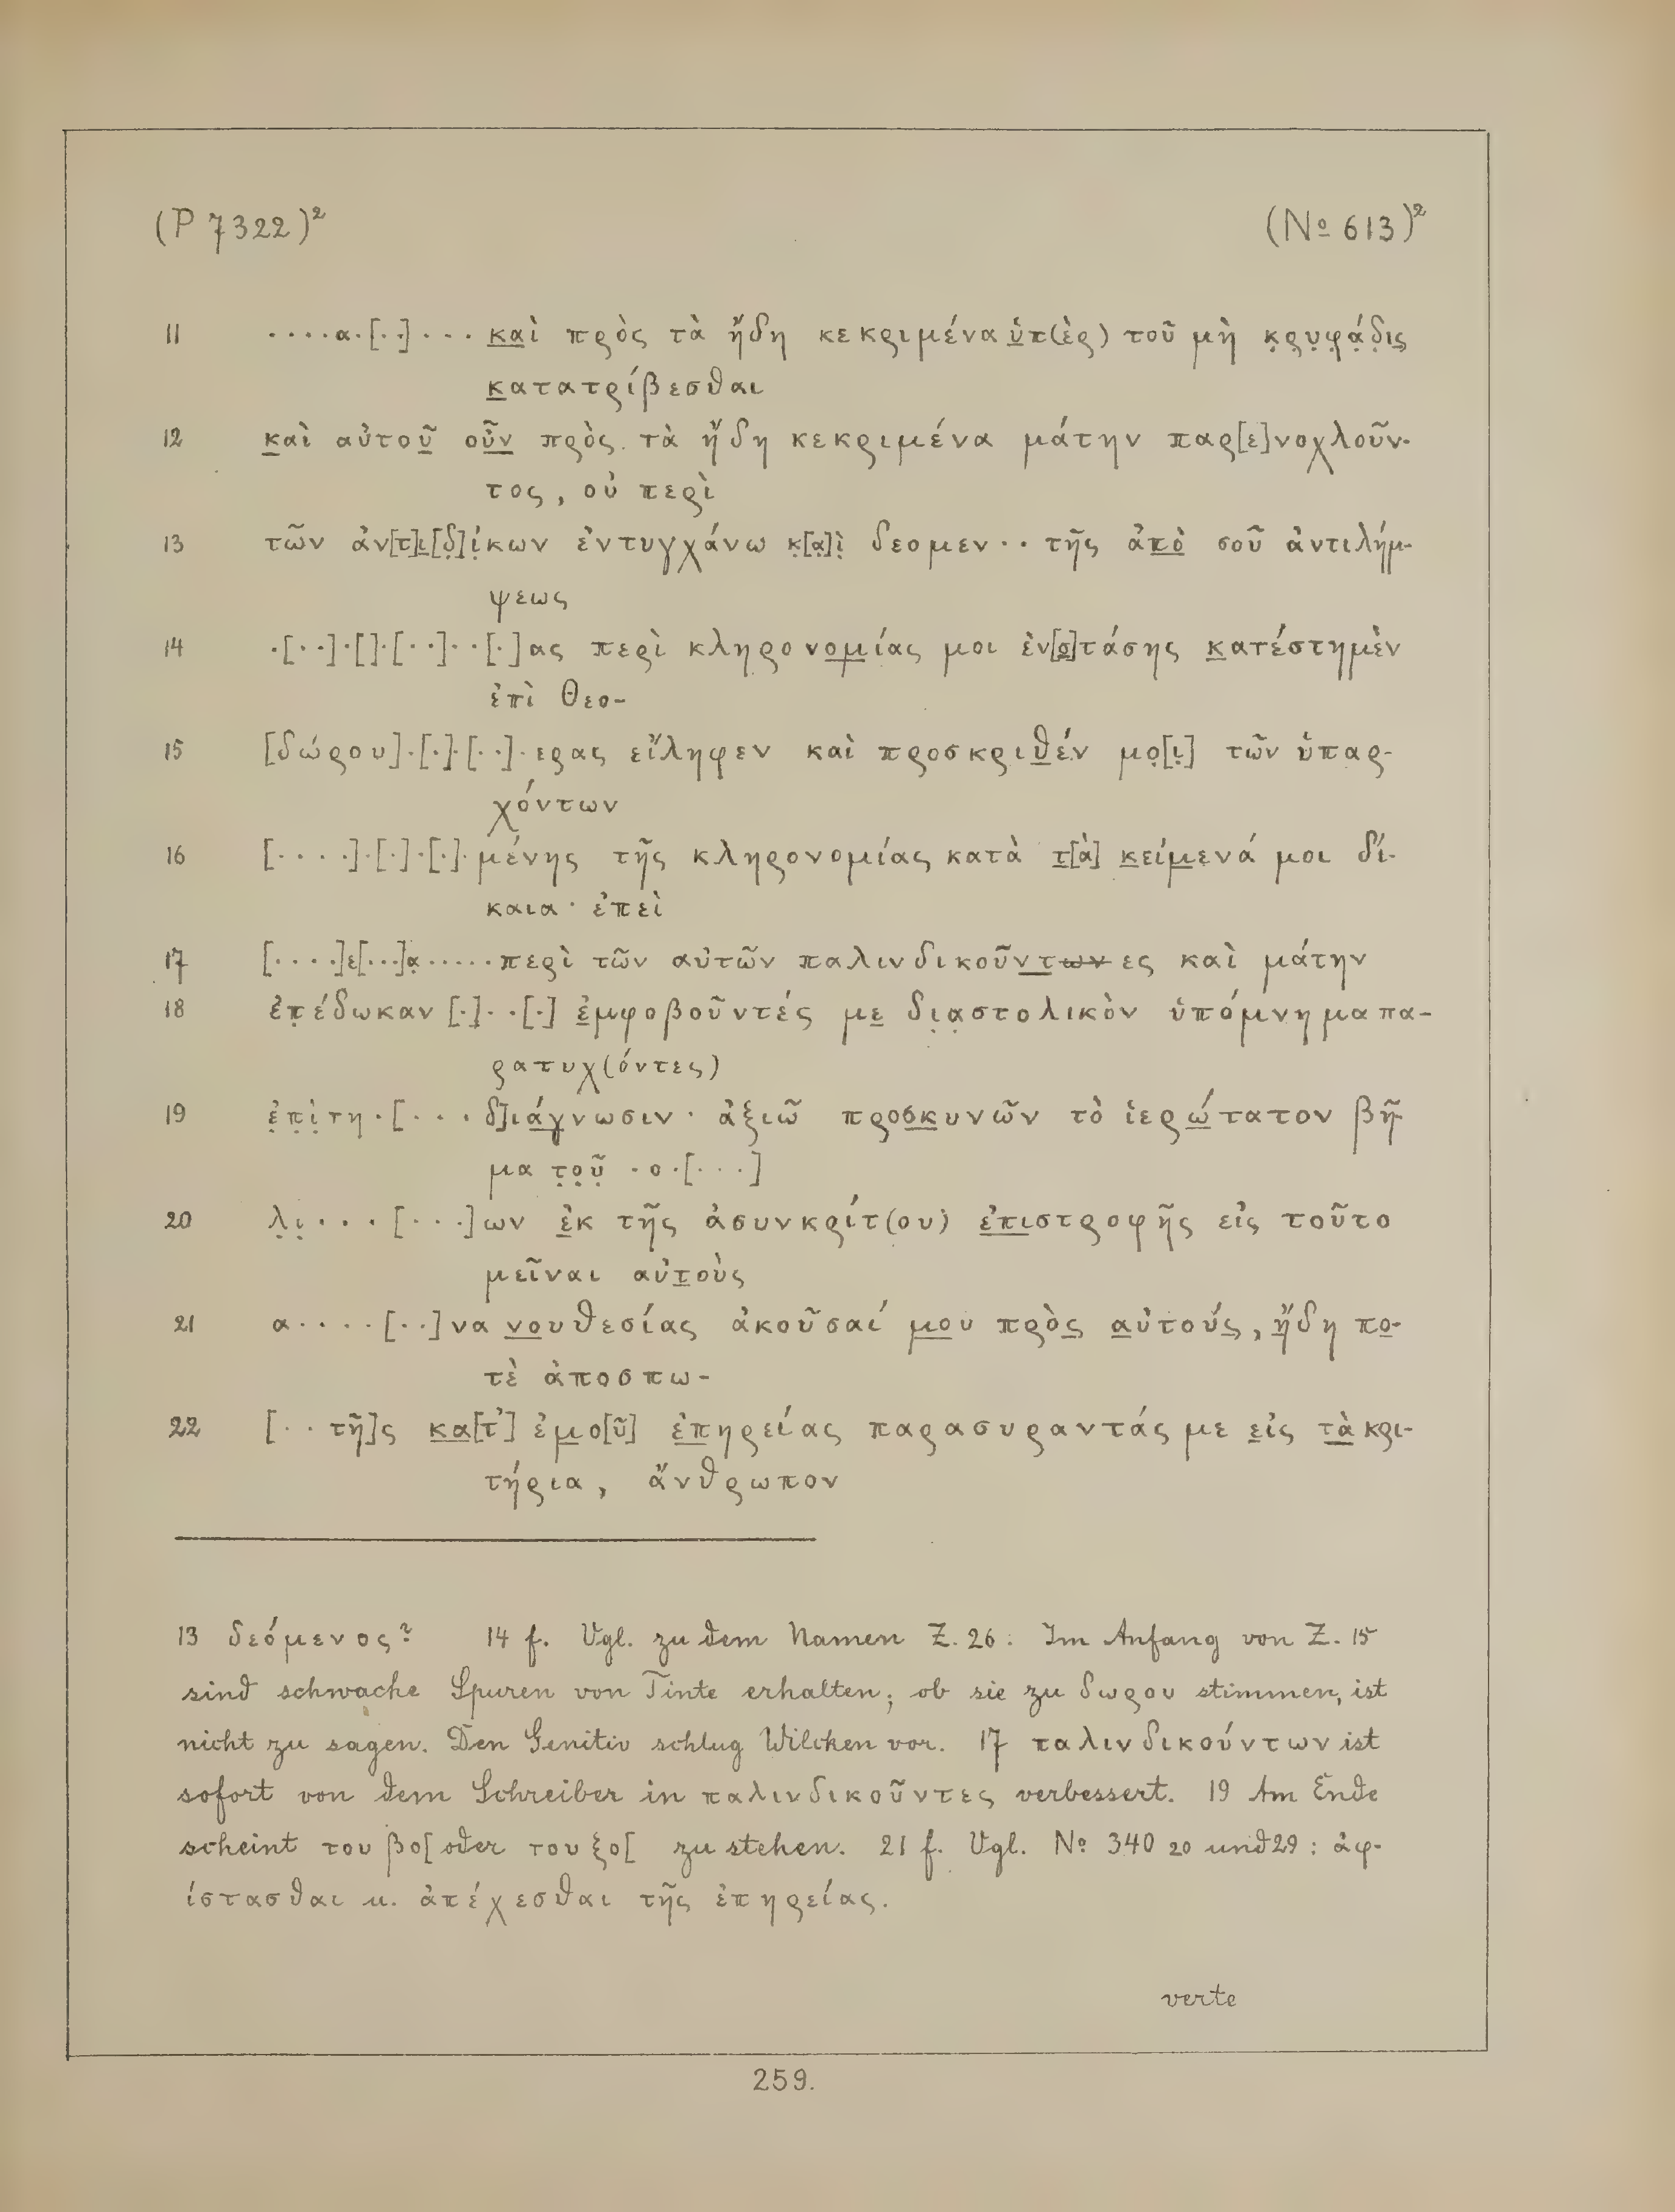 (P 7322)² (Nº 613)²
11 ････α･[･･]･･･ καὶ πρὸς τὰ ἤδη κεκριμένα ὑπ(ὲρ) τοῦ μὴ κ̣ρ̣υ̣φ̣ά̣δ̣ις̣
κατατρίβεσθαι
12 καὶ αὐτοῦ οὖν πρὸς τὰ ἤδη κεκριμένα μάτην παρ[ε]νοχλοῦν-
τος, οὐ περὶ
13 τῶν ἀν[τ]ι[δ̣]ί̣κων ἐντυγχάνω κ̣[α̣]ὶ̣ δεομεν･･ τῆς ἀπὸ σοῦ ἀντιλήμ-
ψεως
14 ･[･･]･[]･[･･]･･[･]ας περὶ κληρονομίας μοι ἐν[σ]τάσης κατέστημὲν
ἐπὶ Θεο-
15 [δώρου]･[･]･[･･]･ερας εἴληφεν καὶ προσκριθέν μο̣[ι̣] τῶν ὑπαρ-
χόντων
16 [････]･[･]･[･]･μένης τῆς κληρονομίας κατὰ τ[ὰ] κείμενά μοι δί-
καια· ἐπεὶ
17 [････]ε[･･･]α̣･････περὶ τῶν αὐτῶν παλινδικοῦντω̶ν̶ες καὶ μάτην
18 ἐπ̣έδωκαν [･]･･[･] ἐμφοβοῦντές με δι̣α̣στολικὸν ὑπόμνημα πα-
ρατυχ(όντες)
19 ἐ̣π̣ὶ̣ τη･[･･･ δ]ιάγνωσιν· ἀξιῶ προσκυνῶν τὸ ἱερώτατον βῆ-
μα τ̣ο̣ῦ̣ ･ο･[･･･]
20 λ̣ι̣･･･[･･･]ων ἐκ τῆς ἀσυνκρίτ(ου) ἐπιστροφῆς εἰς τοῦτο
μεῖναι αὐτοὺς
21 α････[･･]να νουθεσίας ἀκοῦσαί μου πρὸς αὐτούς, ἤδη πο-
τὲ ἀποσπω-
22 [･･ τῆ]ς κα[τ’] ἐμο[ῦ] ἐπηρείας παρασυραντάς με εἰς τὰ κρι-
τήρια, ἄνθρωπον
13 δεόμενος? 14 f. Vgl. zu dem Namen Z. 26: Im Anfang von Z. 15
sind schwache Spuren von Tinte erhalten; ob sie zu δωρου stimmen, ist
nicht zu sagen. Den Genitiv schlug Wilcken vor. 17 παλινδικούντων ist
sofort von dem Schreiber in παλινδικοῦντες verbessert. 19 Am Ende
scheint του βο[ oder του ξο[ zu stehen. 21 f. Vgl. Nº 340 20 und 29: ἀφ-
ίστασθαι u. ἀπέχεσθαι τῆς ἐπηρείας.
verte
259.